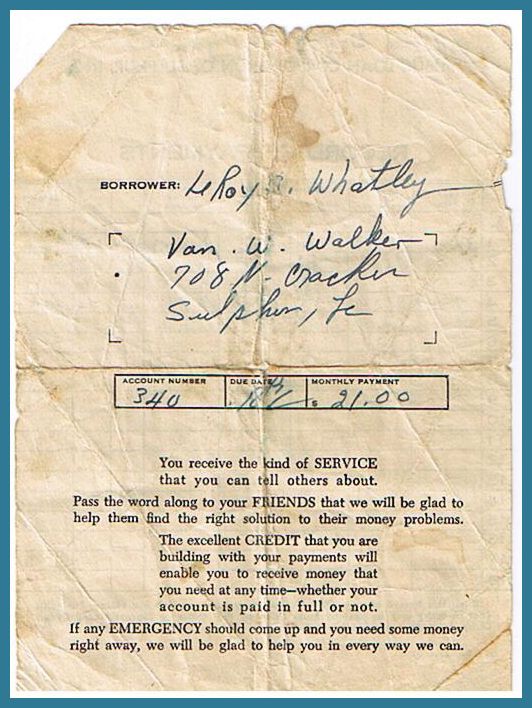 BORROWER: LeRoy B. Whatley
Van. W. Walker
708 N. Cracker
Sulphur, La
ACCOUNT NUMBER DUE DATE MONTHLY PAYMENT
340 18th $ 21.00
You receive the kind of SERVICE
that you can tell others about.
Pass the word along to your FRIENDS that we will be glad to
help them find the right solution to their money problems.
The excellent CREDIT that you are
building with your payments will
enable you to receive money that
you need at any time—whether your
account is paid in full or not.
If any EMERGENCY should come up and you need some money
right away, we will be glad to help you in every way we can.